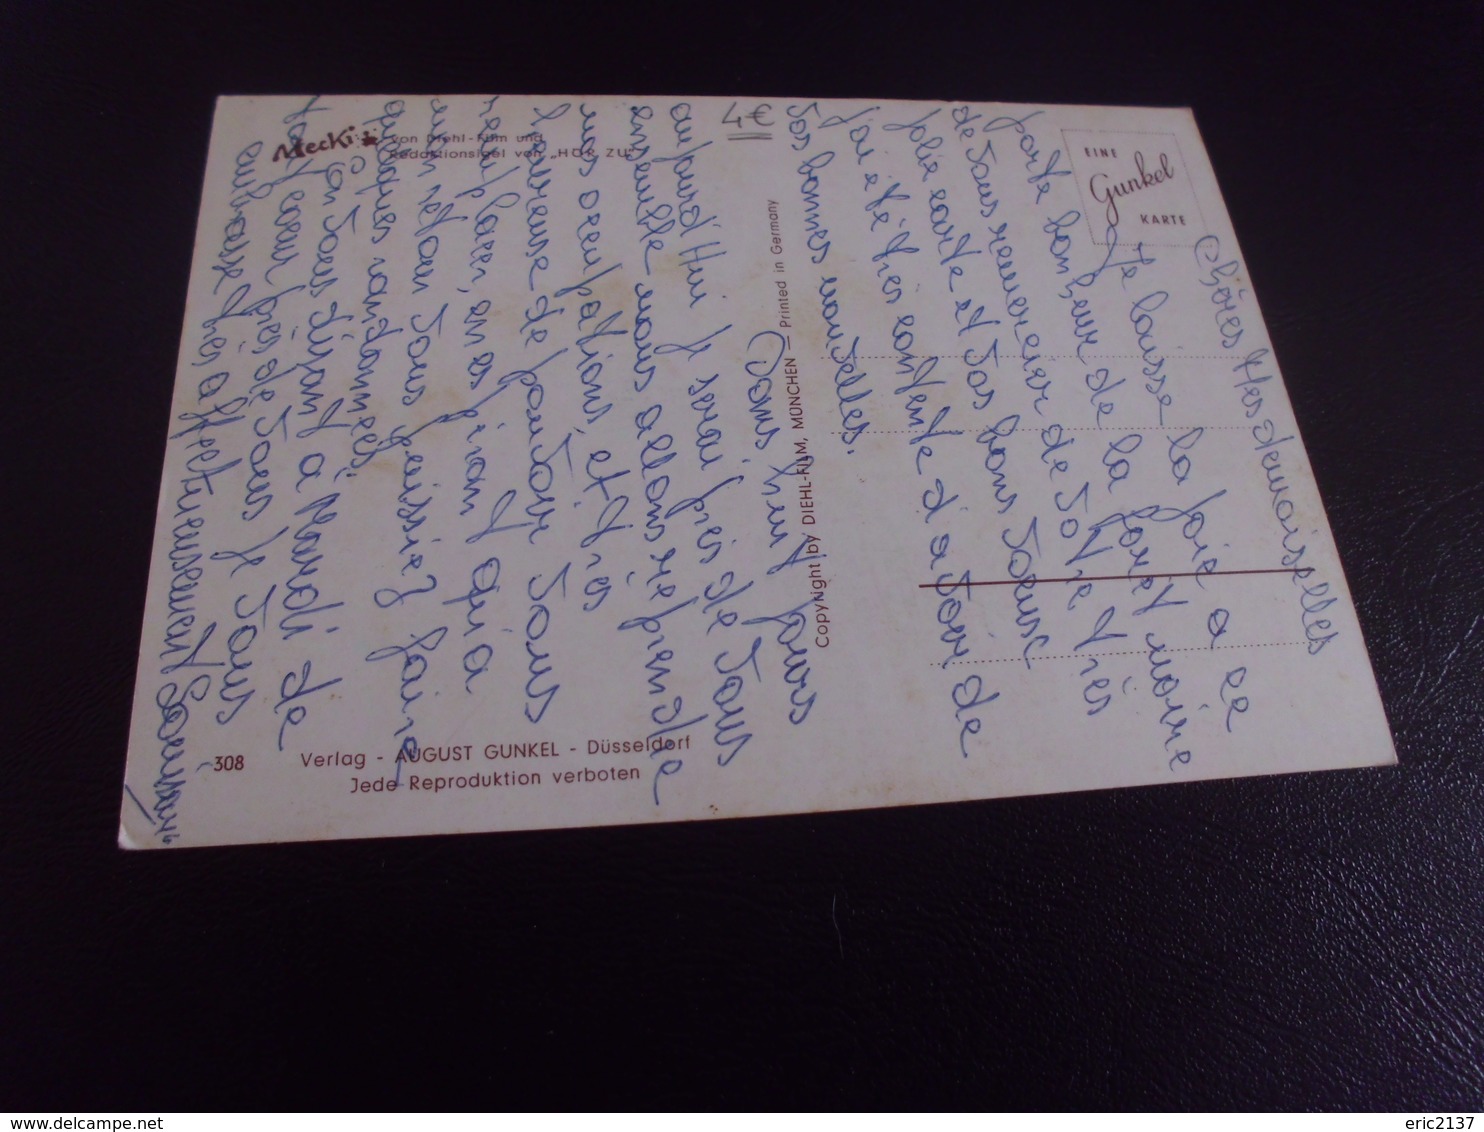 Chères Mesdemoiselles
Je laisse la joie à ce
porte bonheur de la forêt noire
de vous remercier de votre très
jolie carte et vos bons voeux
j'ai été très contente d'avoir de
vos bonnes nouvelles.
Dans huit jours
aujourd'hui je serai près de vous
ensemble nous allons reprendre
nos occupations, et très
heureuse de pouvoir vous
remplacer, en espérant qu'à
mon retour vous puissiez faire
quelques randonnées!
En vous disant à lundi de
tout coeur près de vous je vous
embrasse très affectueusement
4€
Mecki
von Diehl-Film und
Redaktionsigel von „HÖR ZU"
EINE
Gunkel
KARTE
Copyright by DIEHL-FILM, MÜNCHEN — Printed in Germany
308
Verlag - AUGUST GUNKEL - Düsseldorf
Jede Reproduktion verboten
delcampe.net
eric2137